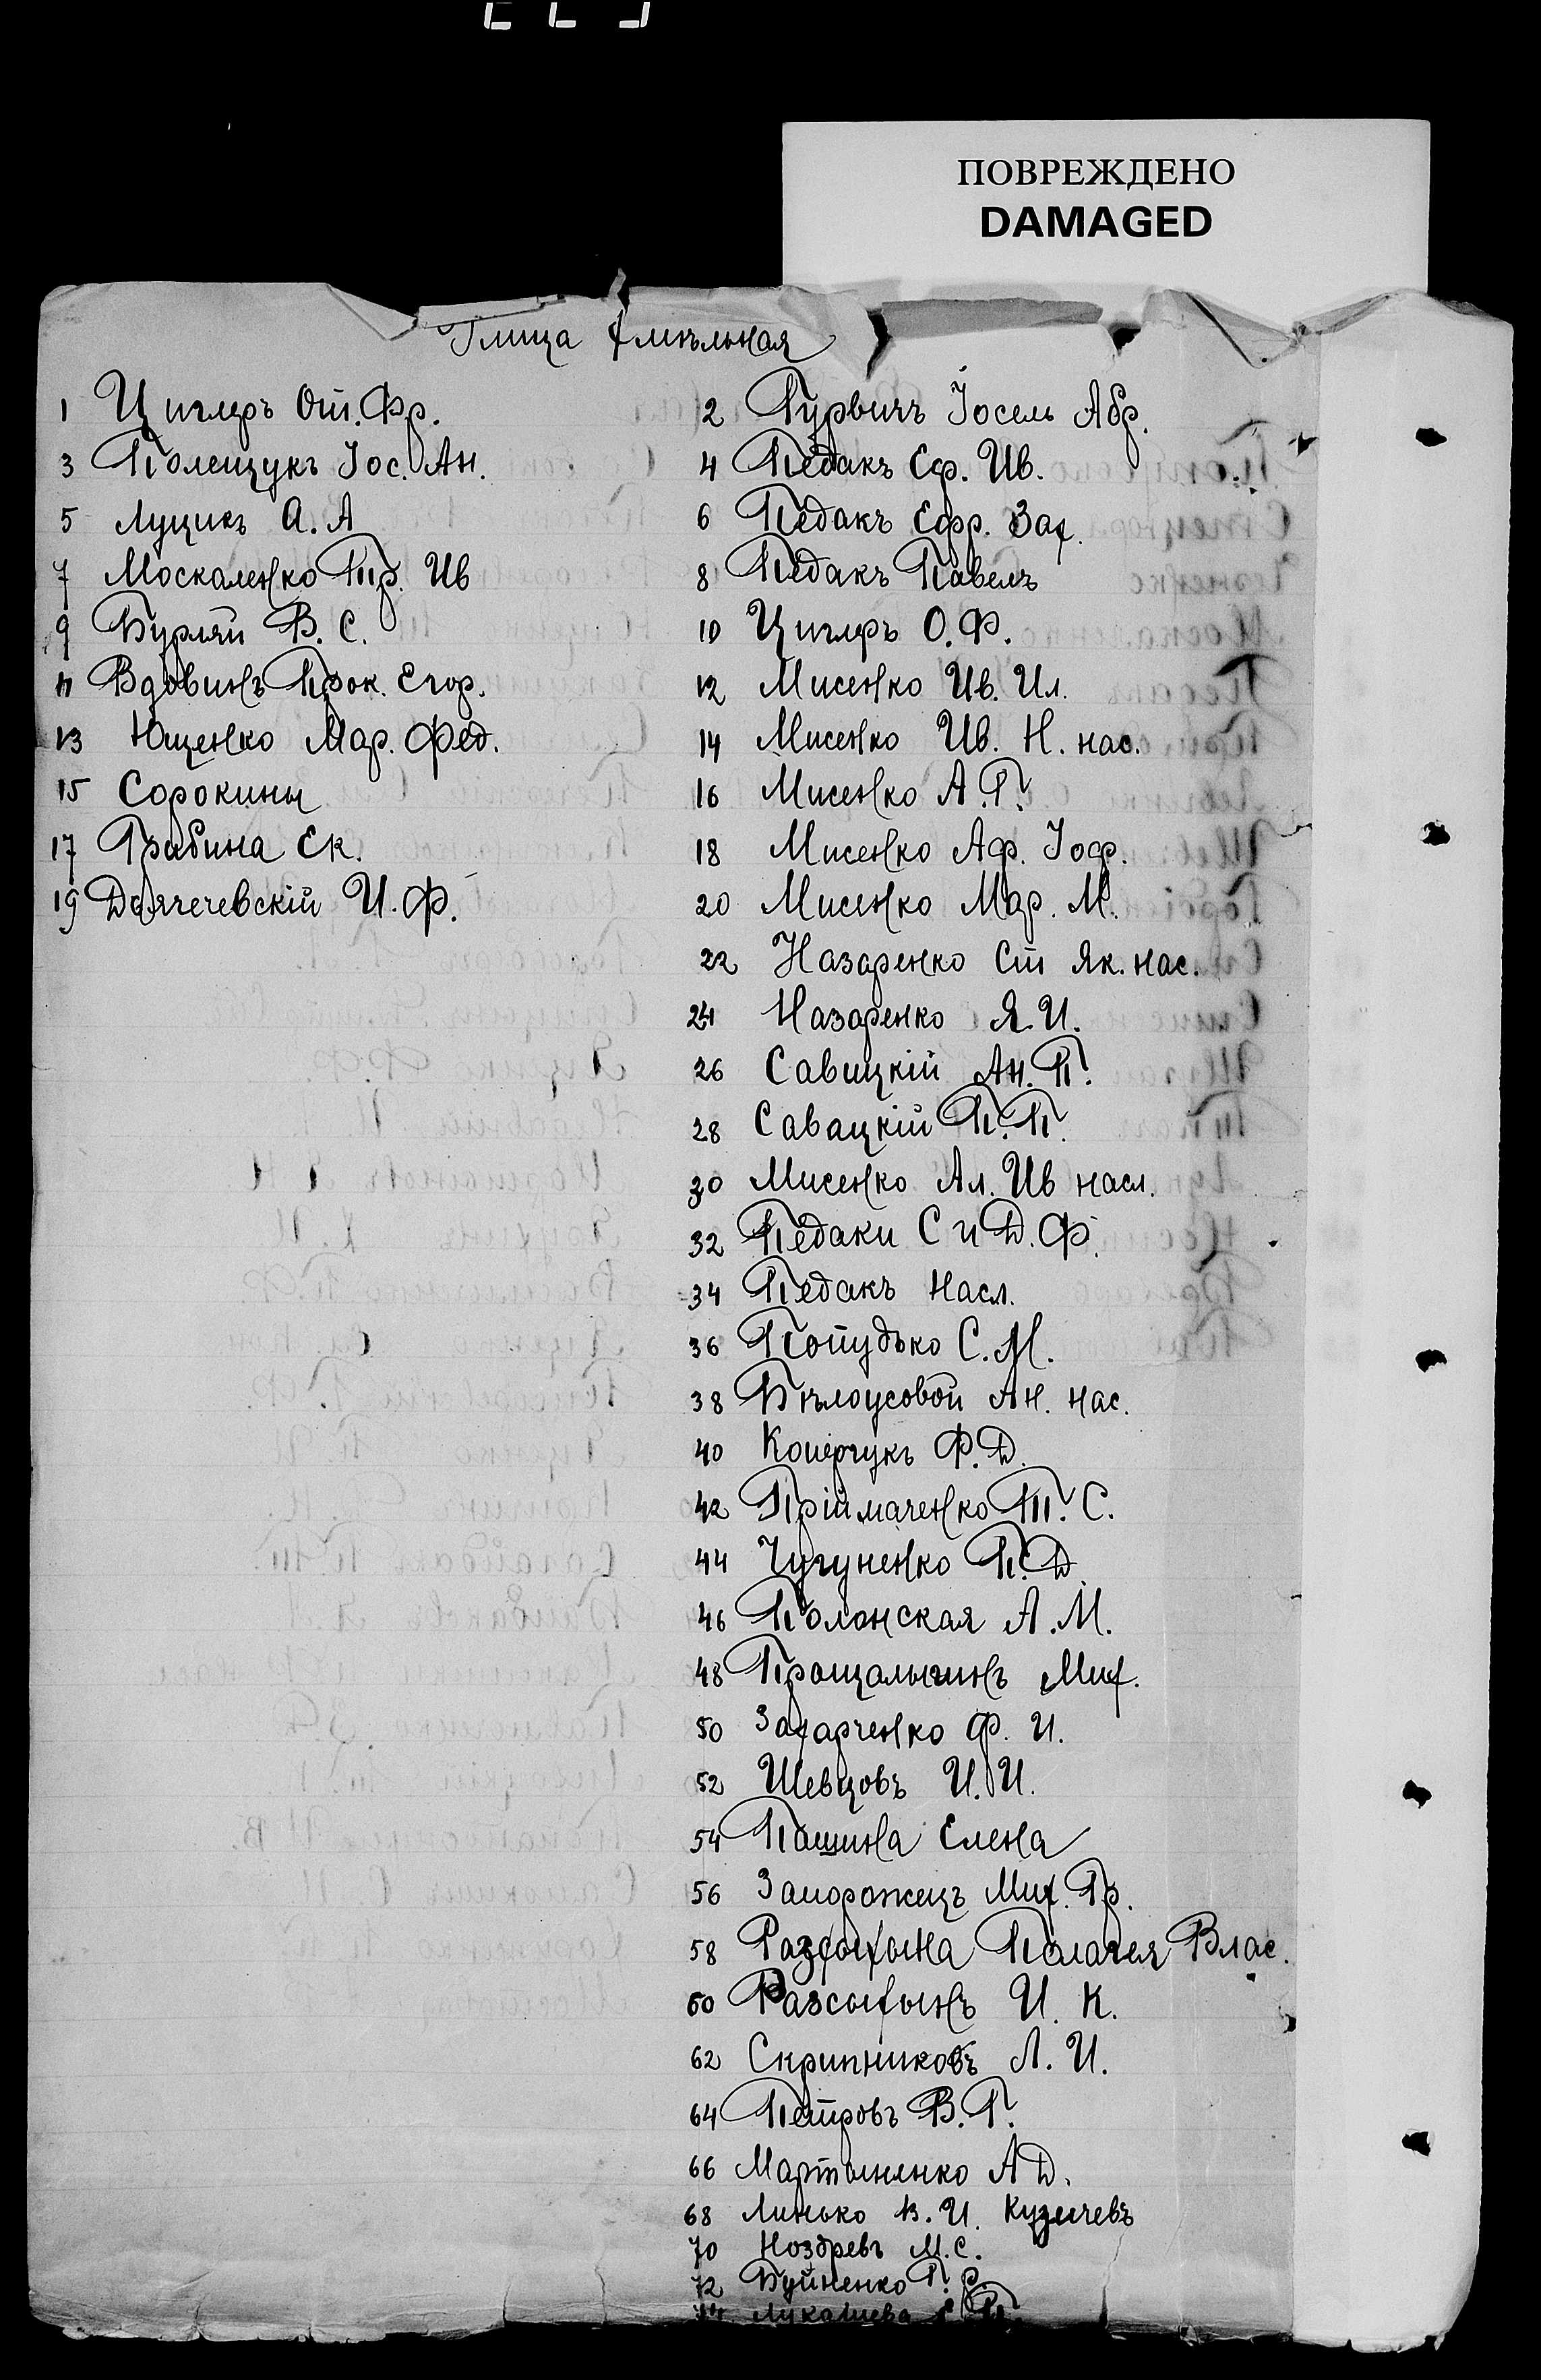 ПОВРЕЖДЕНО
DAMAGED
Улица Хмѣльная
1 Циглеръ От. Фр.
3 Полещукъ Іос. Ан.
5 Луцикъ А. А
7 Москаленко Тр. Ив
9 Бурлай В. С.
11 Вдовинъ Прок. Егор.
13 Ющенко Мар. Фед.
15 Сорокины
17 Грибина Ек.
19 Дьячечевскій И. Ф.
2 Гурвичъ Іосель Абр.
4 Педакъ Еф. Ив.
6 Педакъ Ефр. Зах.
8 Педакъ Павелъ
10 Циглеръ О. Ф.
12 Мисенко Ив. Ил.
14 Мисенко Ив. Н. нас.
16 Мисенко А. Г.
18 Мисенко Аф. Іоф.
20 Мисенко Мар. М.
22 Назаренко Ст Як. нас.
24 Назаренко Я. И.
26 Савицкій Ан. П.
28 Савацкій П. П.
30 Мисенко Ал. Ив насл.
32 Педаки С и Д. Ф.
34 Педакъ Насл.
36 Попудько С. М.
38 Бѣлоусовой Ан. нас.
40 Коперчукъ Ф. Д.
42 Пріймаченко Т. С.
44 Чугуненко П. Д
46 Полонская А. М.
48 Прощалыгинъ Мих.
50 Захарченко Ф. И.
52 Шевцовъ И. И.
54 Пашина Елена
56 Запорожецъ Мих. Гр.
58 Разсыхына Полагея Влас.
60 Разсыхынъ И. К.
62 Скрипниковъ Л. И.
64 Петровъ В. Г.
66 Мартыненко А Д.
68 Линько В. И. Кузичевъ
70 Ноздревъ М. С.
72 Буйненко Г. Р.
74 Лукашева